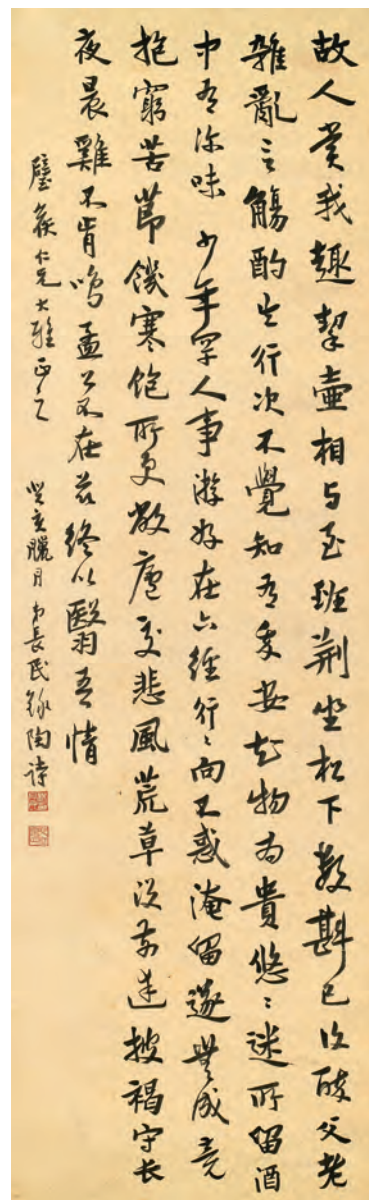 故人賞我趣挈壺相与至班荊坐松下數斟已復醉父老
雜亂言觴酌失行次不覺知有我安知物為貴悠〻迷所留酒
中有深味 少年罕人事游好在六經行〻向不惑淹留遂無成竟
抱窮苦節饑寒飽所更敝廬交悲風荒草沒前庭披褐守長
夜晨雞不肯鳴孟公不在茲終以翳吾情
璧仁兄大雅正之 癸亥臘月弟長民錄陶詩